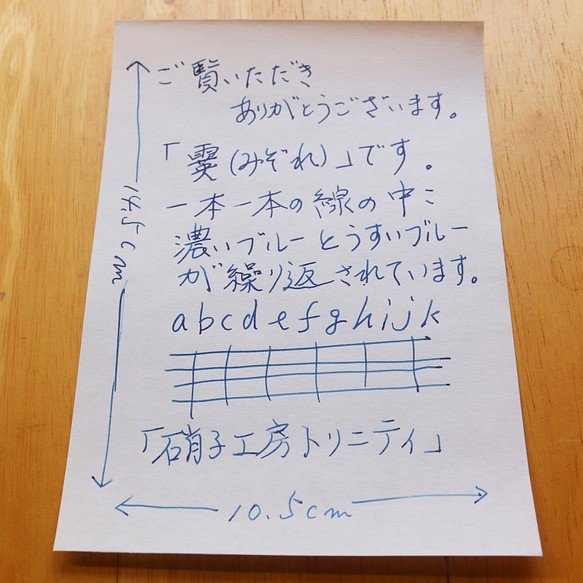 ご覧いただき
ありがとうございます。
「霙(みぞれ)」です。
一本一本の線の中に
濃いブルーとうすいブルー
が繰り返されています。
abcdefghijk
「硝子工房トリニティ」
10.5cm
14.5cm